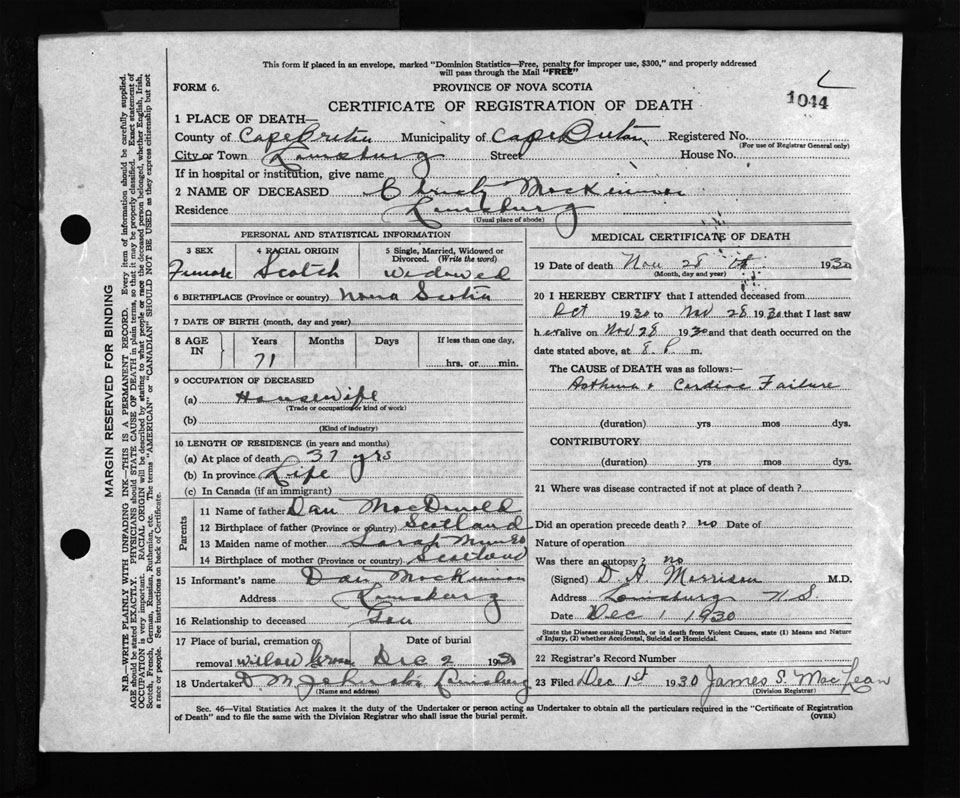 This form if placed in an envelope, marked "Dominion Statistics—Free, penalty for improper use, $300," and properly addressed
will pass through the Mail "FREE"
FORM 6.
PROVINCE OF NOVA SCOTIA
1044
CERTIFICATE OF REGISTRATION OF DEATH
1 PLACE OF DEATH—
County of Cape Breton Municipality of Cape Breton Registered No.
(For use of Registrar General only)
City or Town Louisburg Street House No.
If in hospital or institution, give name
2 NAME OF DECEASED MacKinnon
Residence Louisburg
(Usual place of abode)
PERSONAL AND STATISTICAL INFORMATION
3 SEX 4 RACIAL ORIGIN 5 Single, Married, Widowed or Divorced. (Write the word)
Female Scotch Widowed
6 BIRTHPLACE (Province or country) Nova Scotia
7 DATE OF BIRTH (month, day and year)
8 AGE IN Years Months Days If less than one day,
71 hrs. or min.
9 OCCUPATION OF DECEASED
(a) Housewife
(Trade or occupation or kind of work)
(b)
(Kind of industry)
10 LENGTH OF RESIDENCE (in years and months)
(a) At place of death 37 yrs
(b) In province Life
(c) In Canada (if an immigrant)
Parents
11 Name of father Dan MacDonald
12 Birthplace of father (Province or country) Scotland
13 Maiden name of mother Sarah Munro
14 Birthplace of mother (Province or country) Scotland
15 Informant's name Dan MacKinnon
Address Louisburg
16 Relationship to deceased Son
17 Place of burial, cremation or removal Date of burial
Willow Grove Dec 2 1930
18 Undertaker D M Johnston Louisburg
(Name and address)
MEDICAL CERTIFICATE OF DEATH
19 Date of death Nov 28 th 1930
(Month, day and year)
20 I HEREBY CERTIFY that I attended deceased from
Oct 1930 to Nov 28 1930 that I last saw
her alive on Nov 28 1930 and that death occurred on
date stated above, at P. m.
The CAUSE of DEATH was as follows:—
Asthma & Cardiac Failure
(duration) yrs mos dys.
CONTRIBUTORY.
(duration) yrs mos dys.
21 Where was disease contracted if not at place of death?
Did an operation precede death? no Date of
Nature of operation
Was there an autopsy? no
(Signed) D. A. Morrison M.D.
Address Louisburg N S
Date Dec 1 1930
State the Disease causing Death, or in death from Violent Causes, state (1) Means and Nature
of Injury, (2) whether Accidental, Suicidal or Homicidal.
22 Registrar's Record Number
23 Filed Dec 1st 1930 James S. MacLean
(Division Registrar)
Sec. 46—Vital Statistics Act makes it the duty of the Undertaker or person acting as Undertaker to obtain all the particulars required in the "Certificate of Registration
of Death" and to file the same with the Division Registrar who shall issue the burial permit.
(OVER)
MARGIN RESERVED FOR BINDING
N.B.—WRITE PLAINLY WITH UNFADING INK—THIS IS A PERMANENT RECORD. Every item of information should be carefully supplied.
AGE should be stated EXACTLY. PHYSICIANS should STATE CAUSE OF DEATH in plain terms, so that it may be properly classified. Exact statement of
OCCUPATION is very important. RACIAL ORIGIN will be described by stating to what people or race the deceased person belonged, whether English, Irish,
Scotch, French, German, Russian, Ruthenian, etc. The terms "AMERICAN" or "CANADIAN" SHOULD NOT BE USED as they express citizenship but not
a race or people. See instructions on back of Certificate.